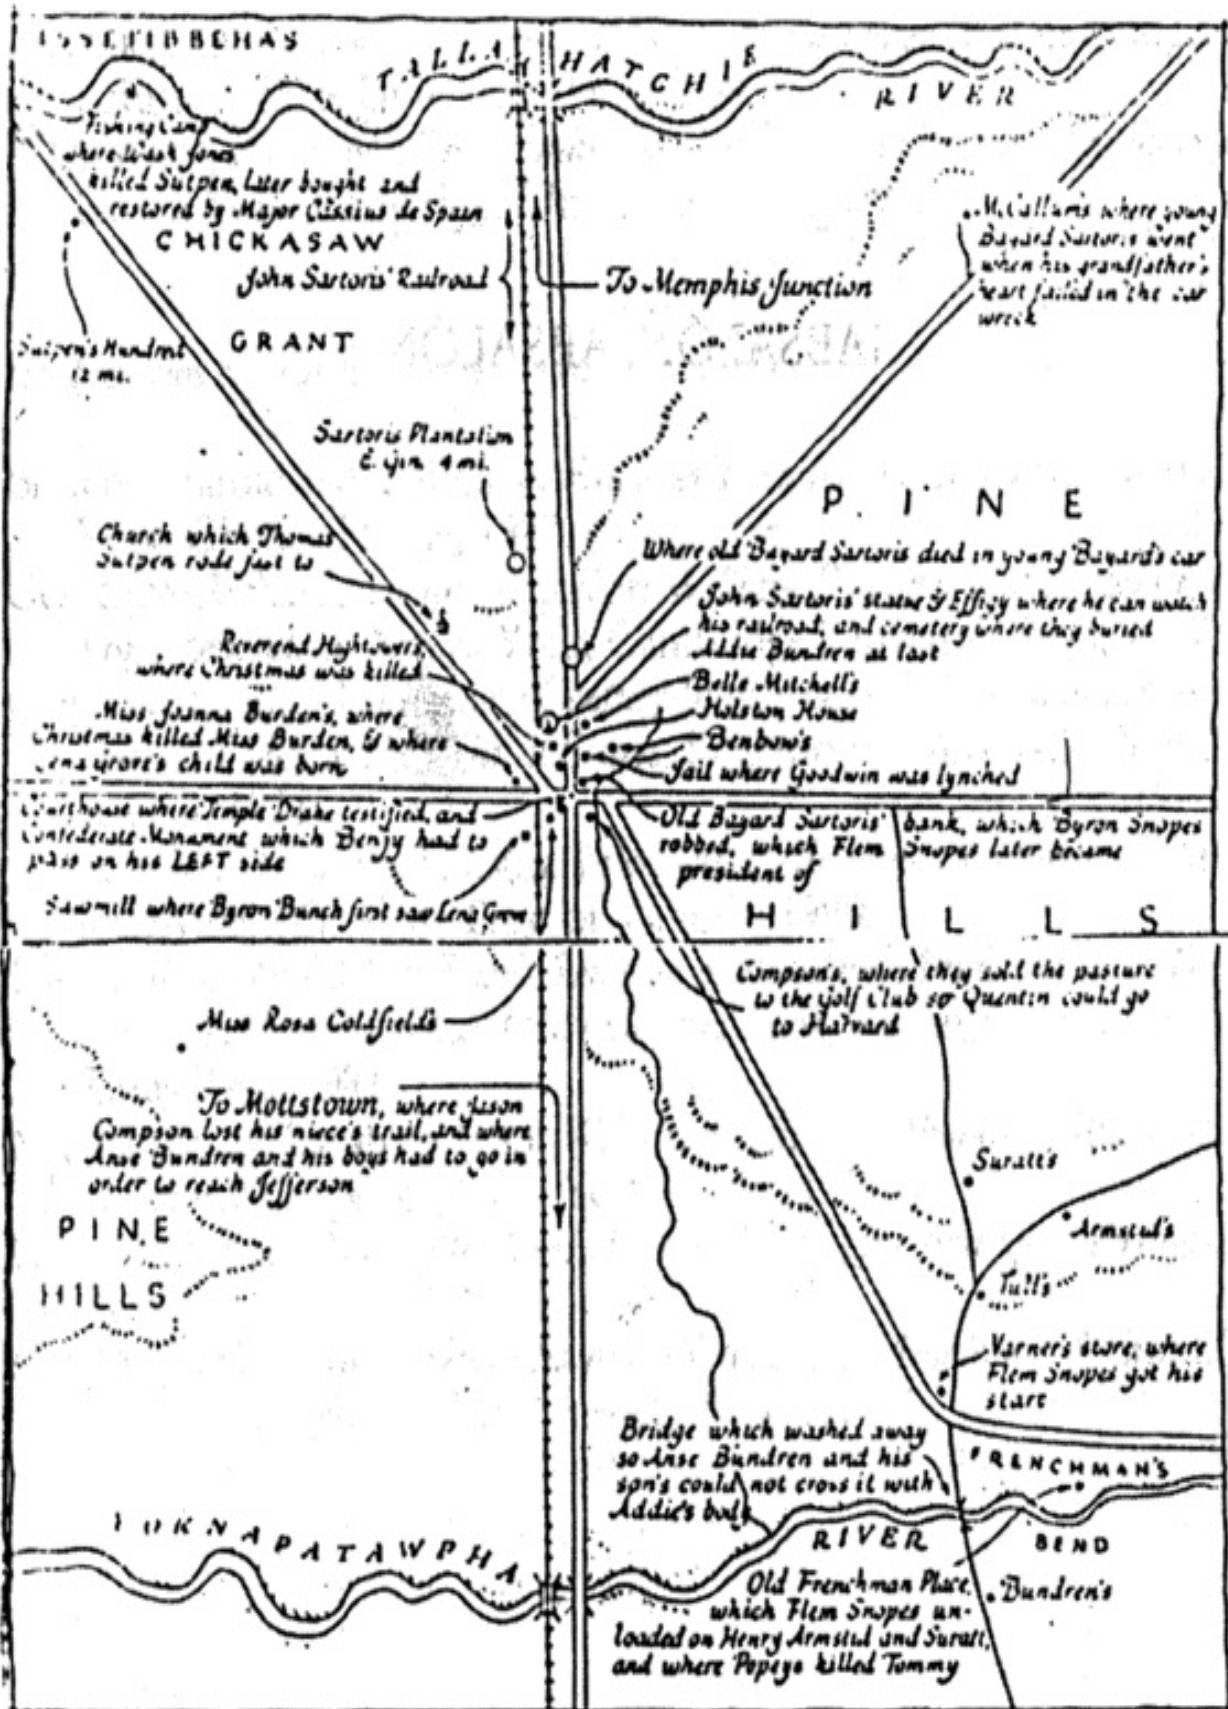 ISSETIBBEHA'S
TALLAHATCHIE RIVER
Fishing Camp
where Wash Jones
killed Sutpen, later bought and
restored by Major Cassius de Spain
CHICKASAW
GRANT
John Sartoris' Railroad
To Memphis Junction
McCallum's where young
Bayard Sartoris went
when his grandfather's
heart failed in the car
wreck
Sutpen's Hundred
12 mi.
Sartoris Plantation
& Gin 4 mi.
PINE
Church which Thomas
Sutpen rode fast to
Where old Bayard Sartoris died in young Bayard's car
John Sartoris' statue & Effigy where he can watch
his railroad, and cemetery where they buried
Addie Bundren at last
Reverend Hightower's,
where Christmas was killed
Belle Mitchell's
Holston House
Benbow's
Jail where Goodwin was lynched
Miss Joanna Burden's, where
Christmas killed Miss Burden, & where
Lena Grove's child was born
Courthouse where Temple Drake testified, and
Confederate Monument which Benjy had to
pass on his LEFT side
Old Bayard Sartoris' bank, which Byron Snopes
robbed, which Flem Snopes later became
president of
Sawmill where Byron Bunch first saw Lena Grove
HILLS
Compson's, where they sold the pasture
to the Golf Club so Quentin could go
to Harvard
Miss Rosa Coldfield's
To Mottstown, where Jason
Compson lost his niece's trail, and where
Anse Bundren and his boys had to go in
order to reach Jefferson
PINE
HILLS
Suratt's
Armstid's
Tull's
Varner's store, where
Flem Snopes got his
start
Bridge which washed away
so Anse Bundren and his
son's could not cross it with
Addie's body
FRENCHMAN'S
BEND
YOKNAPATAWPHA RIVER
Old Frenchman Place,
which Flem Snopes un-
loaded on Henry Armstid and Suratt,
and where Popeye killed Tommy
Bundren's